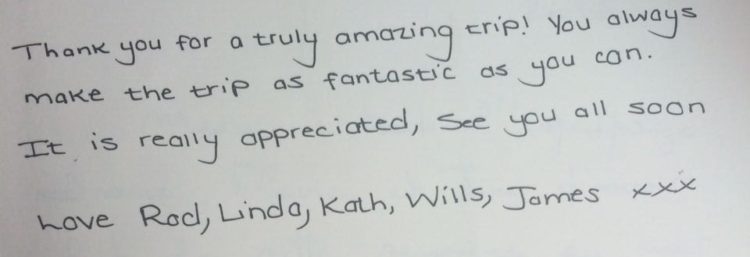 Thank you for a truly amazing trip! You always
make the trip as fantastic as you can.
It is really appreciated, See you all soon
Love Rod, Linda, Kath, Wills, James xxx